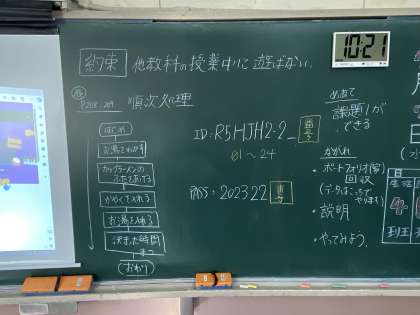 約束 他教科の授業中に遊ばない。
10:21
P208 209 順次処理
はじめ
お湯をわかす
カップラーメンの
ふたをあける
かやくを入れる
お湯を入れる
決まった時間
まつ
おわり
ID:R5HJH2-2_番号
01~24
PASS:202322番号
めあて
課題1が
できる
ながれ
・ポートフォリオ(学)
回収
(データはこっちで
やります)
・説明
・やってみよう。